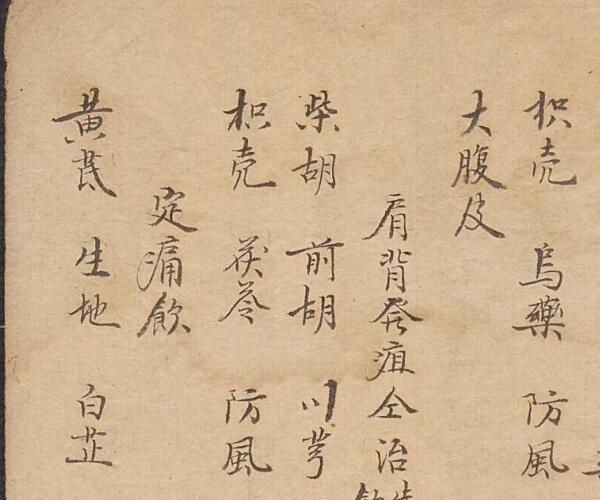 枳壳 烏藥 防風
大腹皮
肩背發疽仝治
柴胡 前胡 川芎
枳壳 茯苓 防風
定痛飲
黃芪 生地 白芷